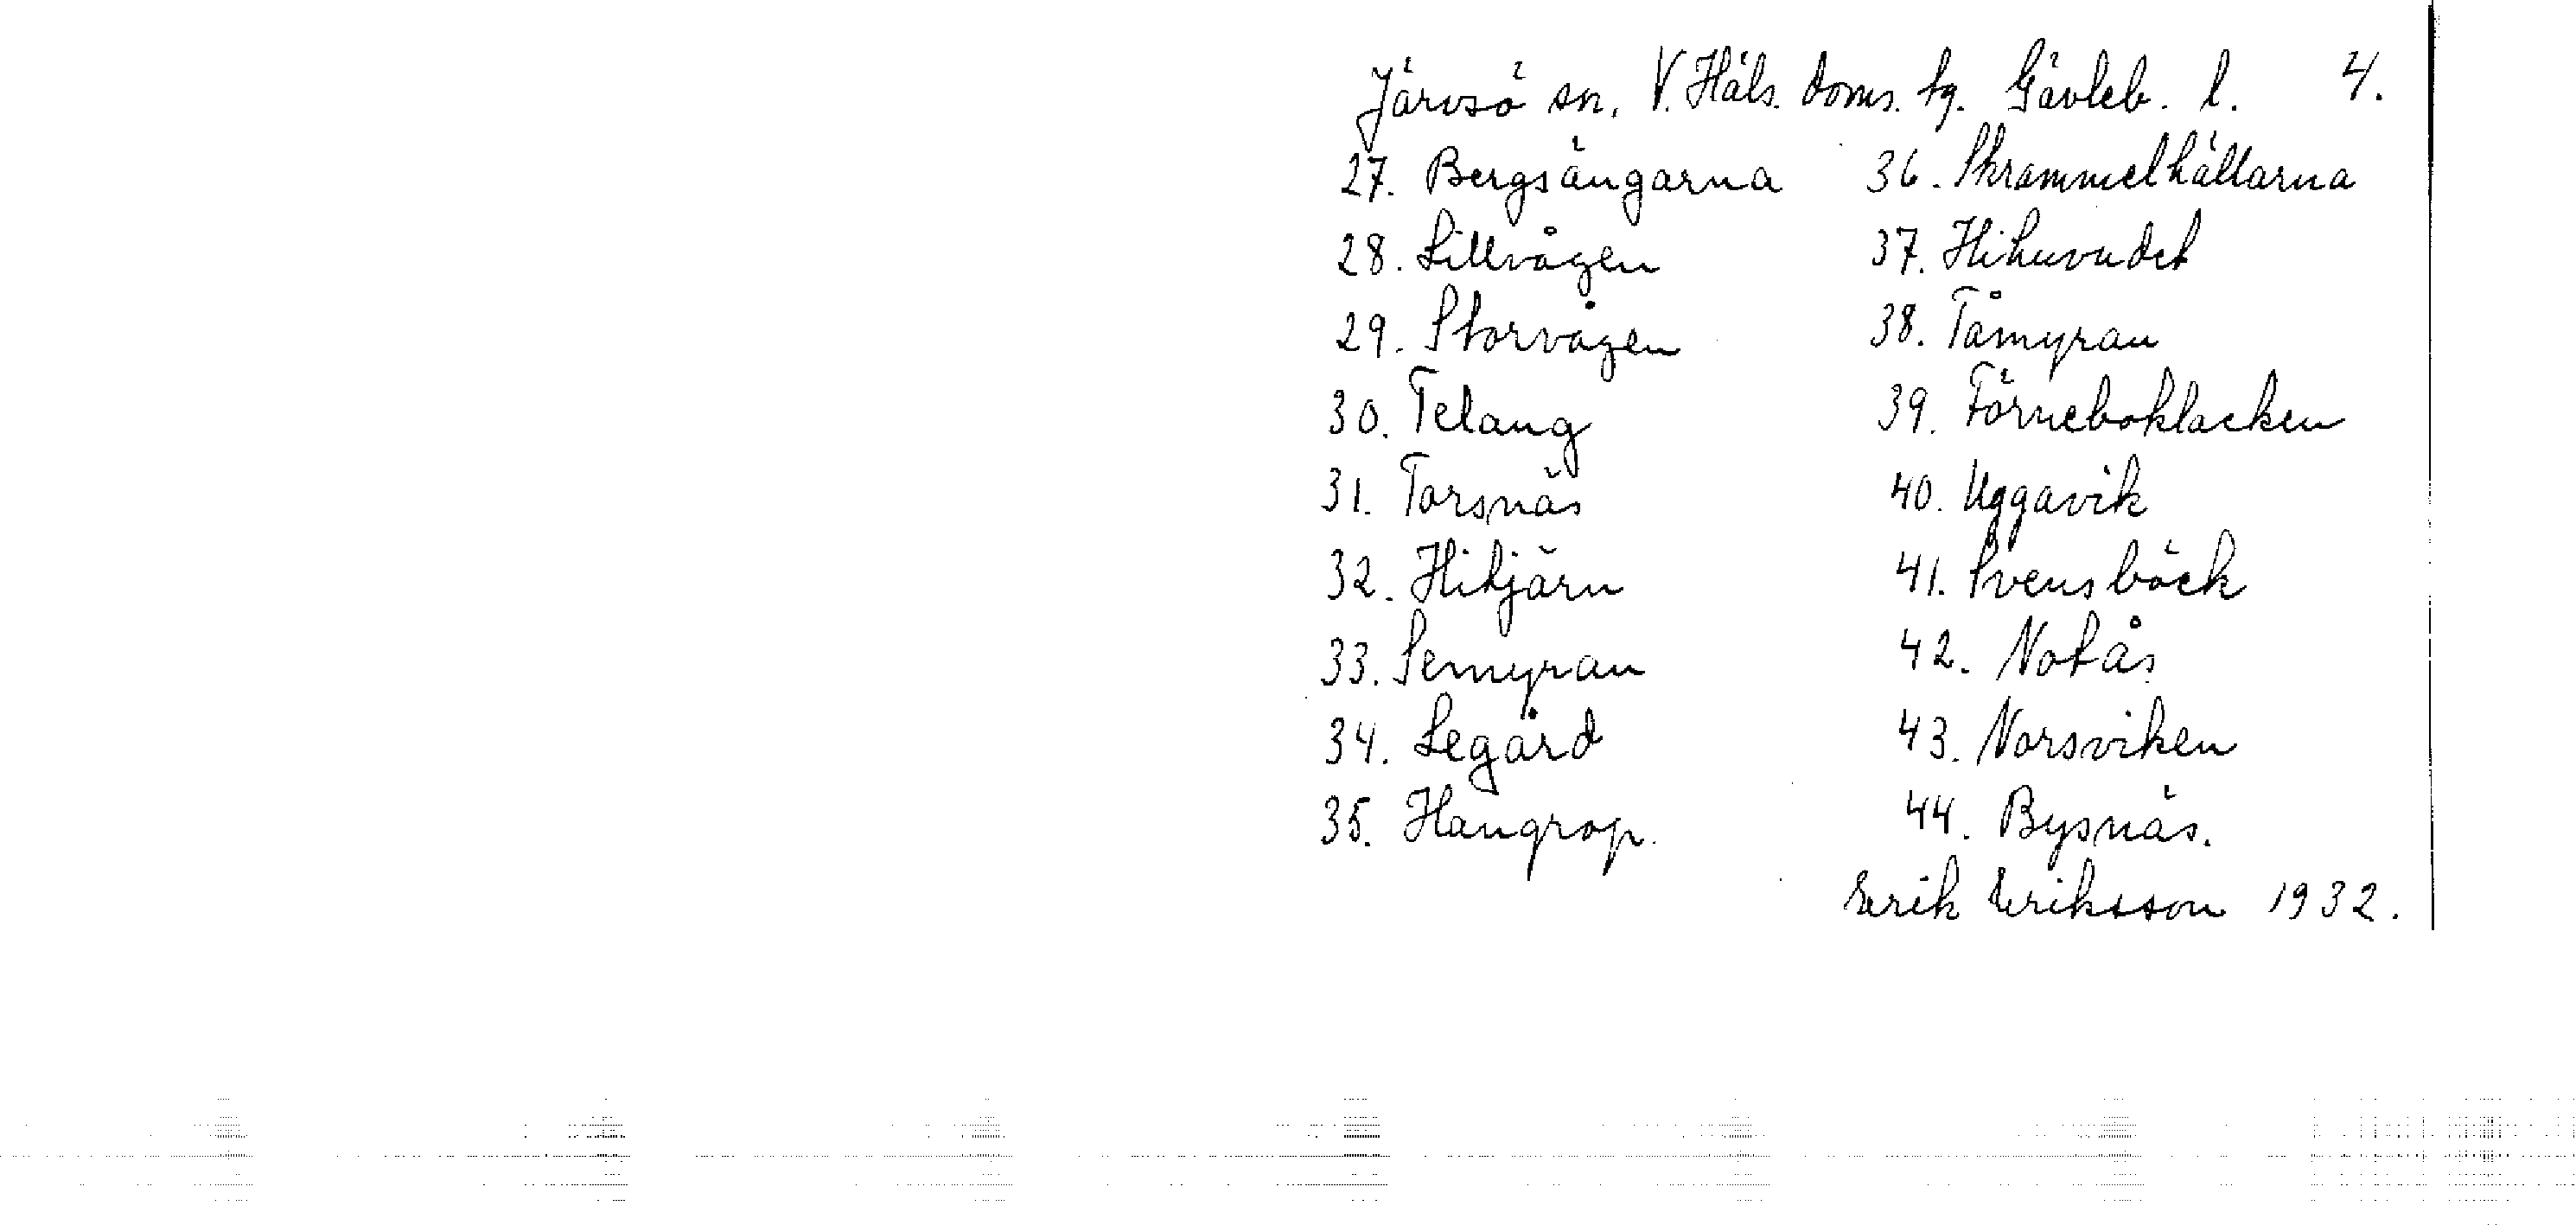 Järvsö sn. V. Häls. doms. sg. Gävleb. l. 4.
27. Bergsängarna
28. Lillvågen
29. Storvågen
30. Telang
31. Torsnäs
32. Hitjärn
33. Semyran
34. Legård
35. Hangrop.
36. Skrammelhällarna
37. Hihuvudet
38. Tåmyran
39. Förneboklacken
40. Uggavik
41. Svensböck
42. Notås
43. Norsviken
44. Bysnäs.
Erik Eriksson 1932.